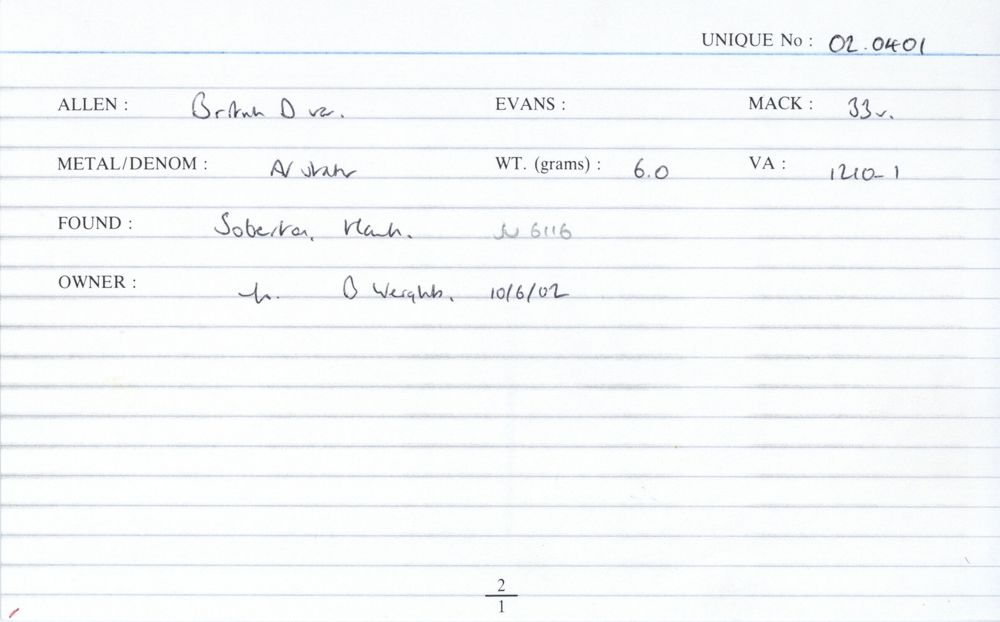 UNIQUE No : 02.0401
ALLEN : British D var. EVANS : MACK : 33v.
METAL/DENOM : AV stater WT. (grams) : 6.0 VA : 1210-1
FOUND : Soberton, Hants. SU 6116
OWNER : 10/6/02
2
1